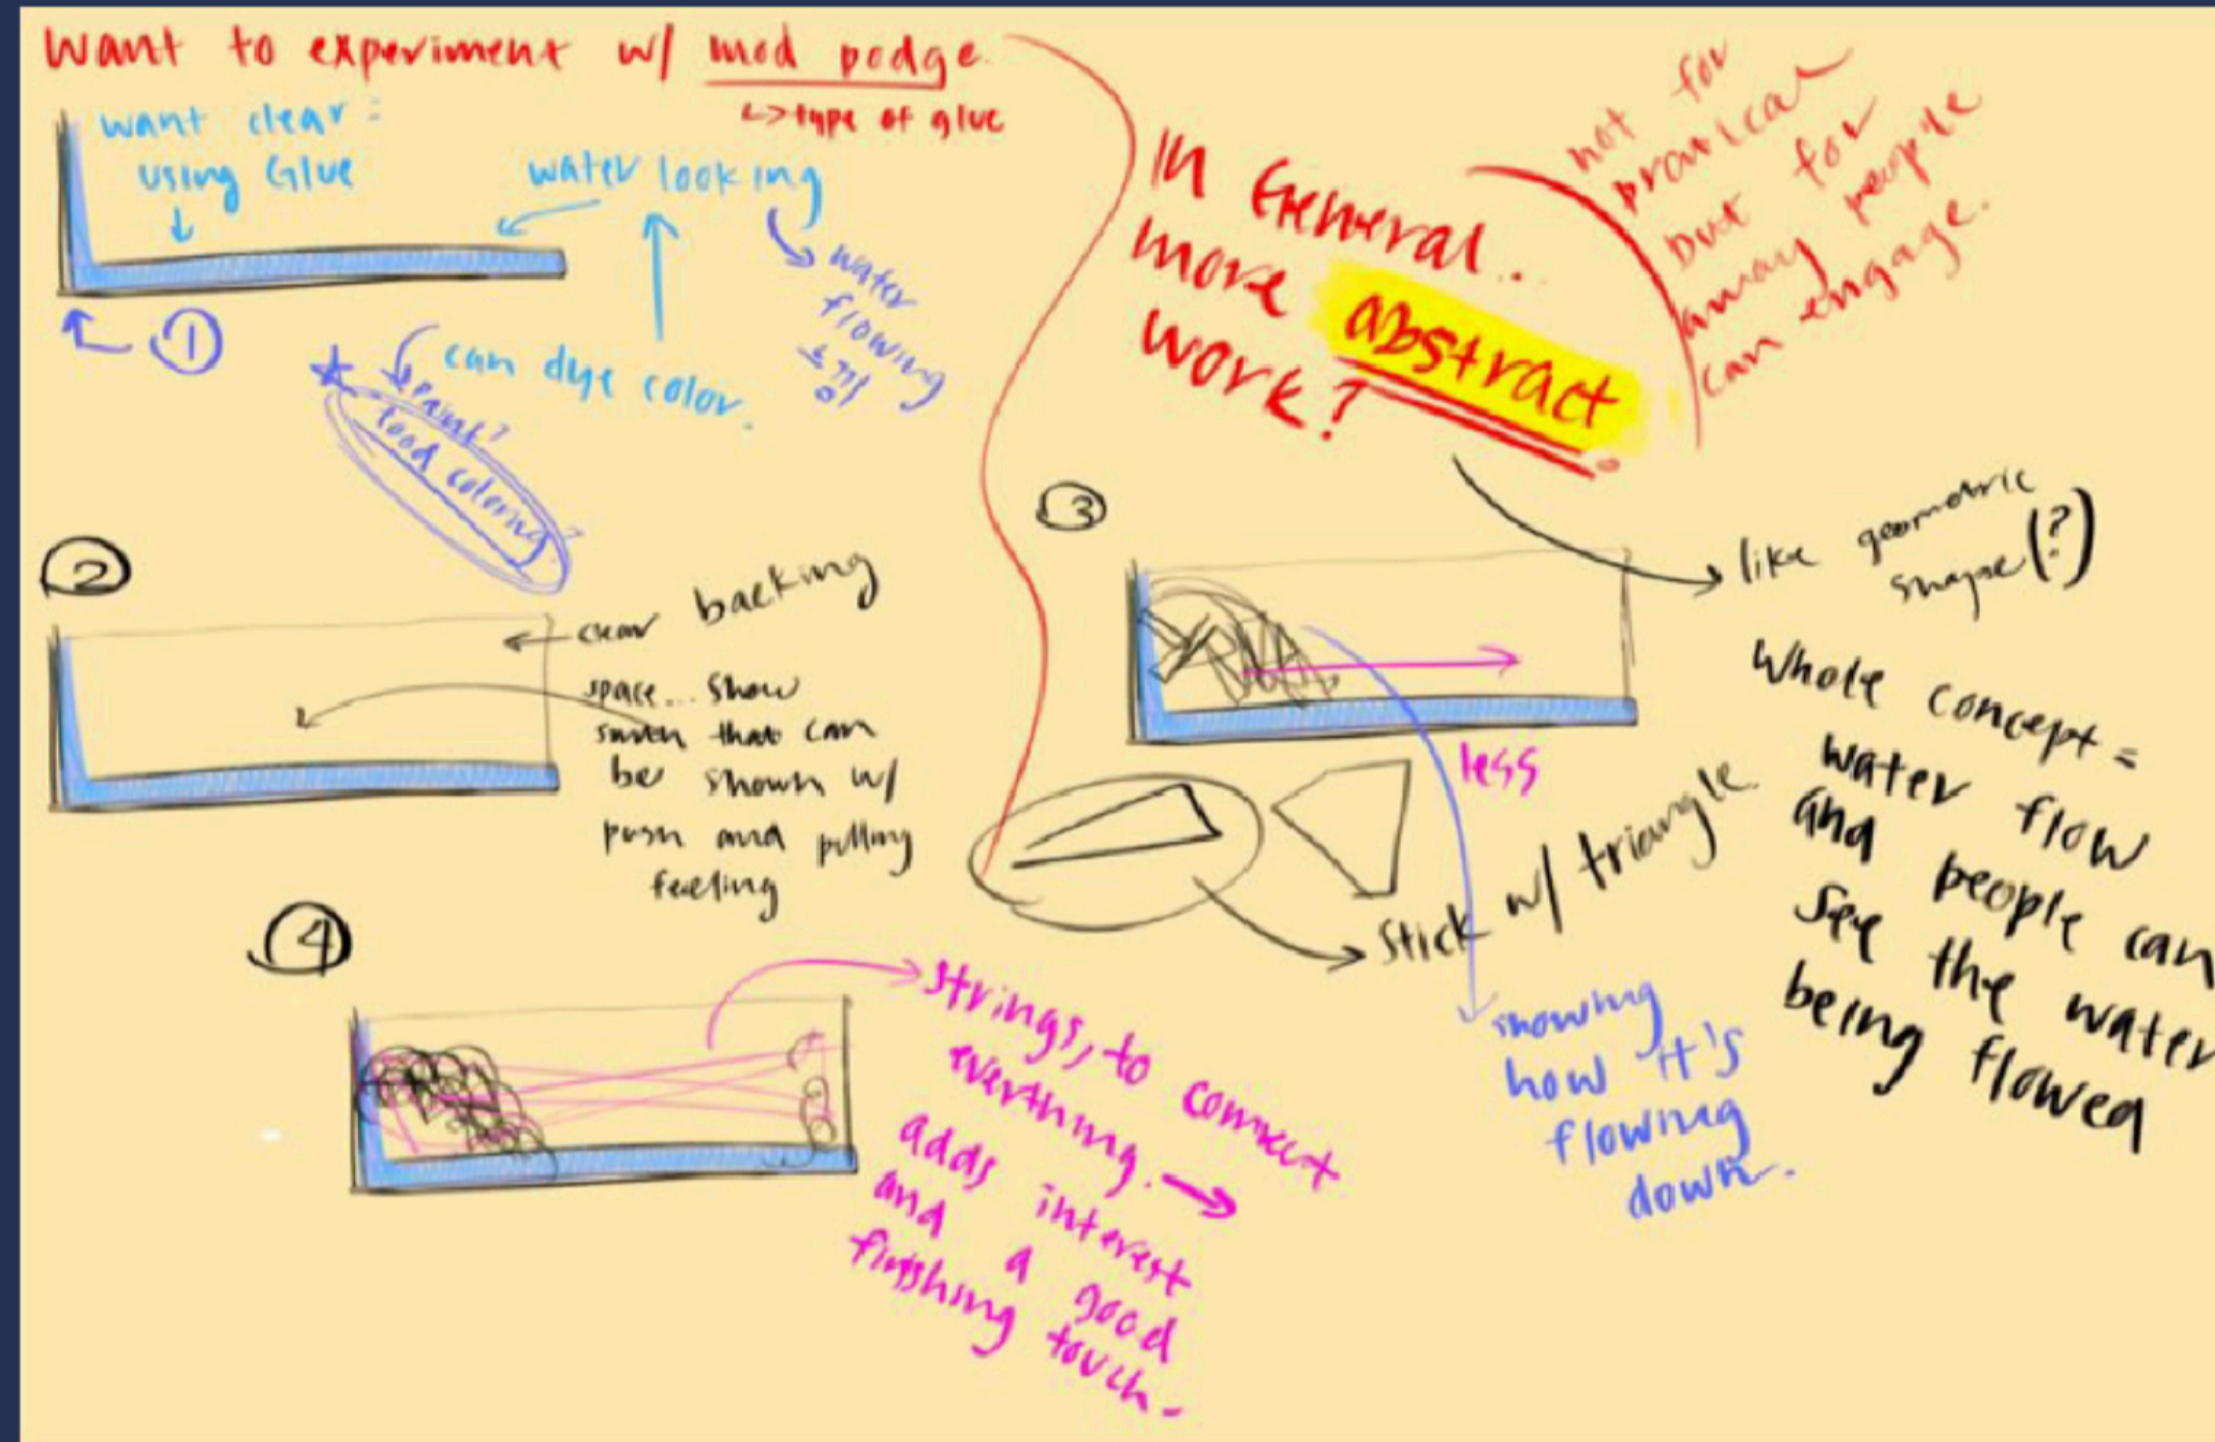 want to experiment w/ mod podge.
↳ type of glue
want clear =
using Glue
water looking
water
flowing
①
can dye color.
paint?
food coloring?
In General..
more abstract
work?
not for
pratical
but for
people
can engage.
②
clear backing
space... show
that can
be shown w/
push and pulling
feeling
③
like geometric
shape (?)
less
stick w/ triangle
showing
how it's
flowing
down.
Whole concept =
water flow
and people can
see the water
being flowed
④
strings, to connect
everthing. →
adds interest
and a good
finishing touch.